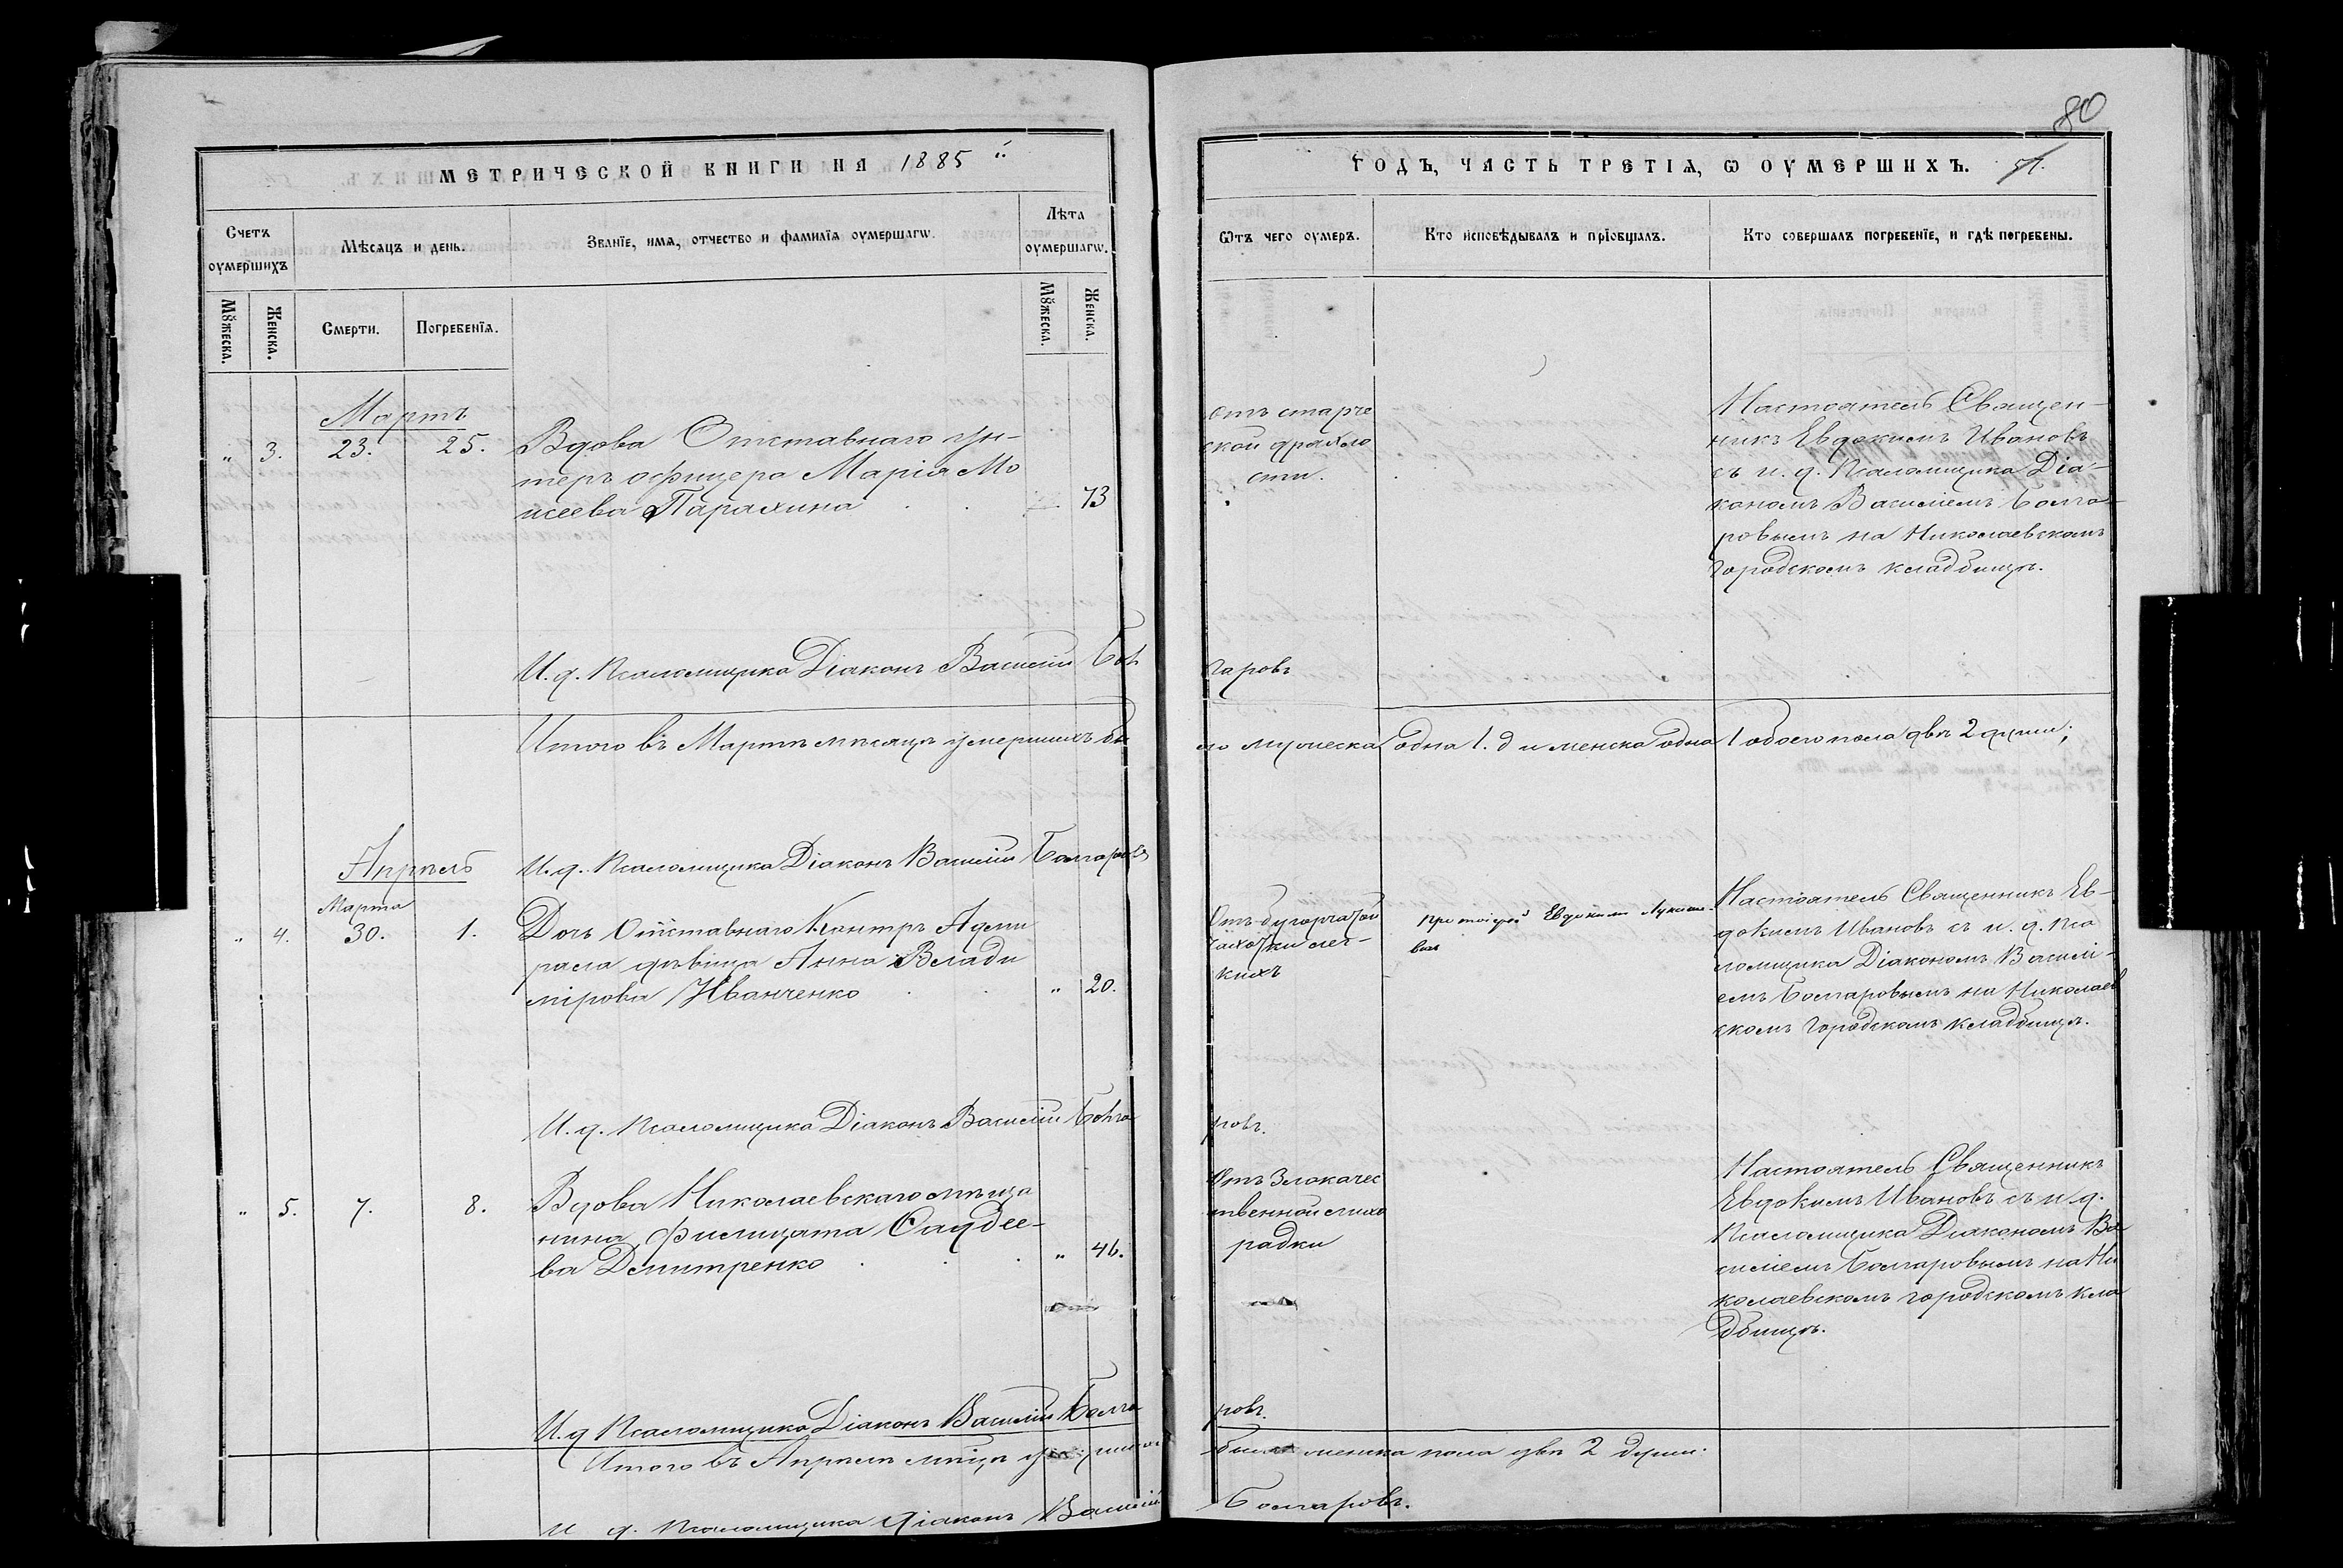 80
МЕТРИЧЕСКОЙ КНИГИ НА 1885 й
ГОДЪ, ЧАСТЬ ТРЕТІѦ, Ѡ ОУМЕРШИХЪ.
Счетъ оумершихъ
Мѣсѧцъ и день.
Званїе, имѧ, отчество и фамилїѧ оумершагѡ.
Лѣта оумершагѡ.
Ѿтъ чего оумеръ.
Кто исповѣдывалъ и прїобщалъ.
Кто совершалъ погребенїе, и гдѣ погребены.
Мꙋжеска.
Женска.
Смерти.
Погребенїѧ.
Мꙋжеска.
Женска.
Мартъ
" 3. 23. 25.
Вдова Отставнаго Ун-
теръ офицера Марія Мо
исеева Парахина
73
Отъ старче
ской дряхло
сти.
Настоятель Священ-
никъ Евдокимъ Ивановъ
съ и. д. Псаломщика Діа-
кономъ Василіемъ Болга-
ровымъ на Николаевскомъ
Городскомъ кладбищѣ.
И. д. Псаломщика Діаконъ Василій Бол
гаровъ
Итого въ Мартѣ мѣсяцѣ умершихъ бы
ло мужеска одна 1. д и женска одна 1 обоего пола двѣ 2 души;
И. д. Псаломщика Діаконъ Василій Болгаровъ
Апрѣль
Марта
" 4. 30. 1.
Дочь Отставнаго Контръ Адми
рала дѣвица Анна Влади
мірова Иванченко
" 20.
Отъ бугорчатой
чахотки лег-
кихъ
Протоіерей Евдокимъ
Настоятель Священникъ Ев-
докимъ Ивановъ съ и. д. Пса
ломщика Діакономъ Василі-
емъ Болгаровымъ на Николаев
скомъ Городскомъ кладбищѣ.
И. д. Псаломщика Діаконъ Василій Болга
ровъ.
" 5. 7. 8.
Вдова Николаевскаго мѣща
нина Филицата Фаддее-
ва Дмитренко
" 46.
Отъ Злокачес
твенной лихо
радки
Настоятель Священникъ
Евдокимъ Ивановъ съ и д.
Псаломщика Діакономъ Ва
силіемъ Болгаровымъ на Ни
колаевскомъ городскомъ кла
дбищѣ.
И. д Псаломщика Діаконъ Василій Болга
ровъ.
Итого въ Апрѣлѣ мѣсцѣ
было женска пола двѣ 2 души.
И д. Псаломщика Діаконъ Василій
Болгаровъ.